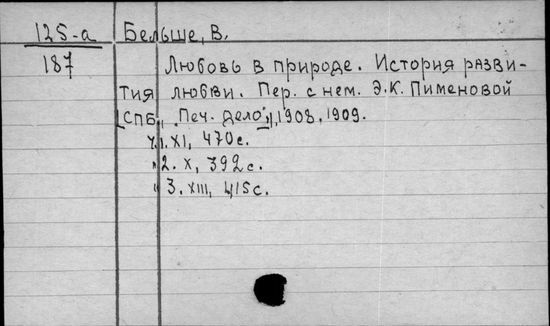 125-а Бельше, В.
187 Любовь в природе. История разви-
тия любви. Пер. с нем. Э.К. Пименовой
СПБ, „Печ. дело", 1908, 1909.
Ч.1. XI, 470с.
" 2. X, 392с.
" 3. XIII, 415с.